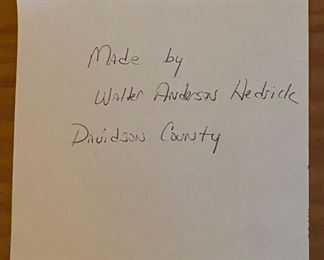 Made by
Walter Anderson Hedrick
Davidson County